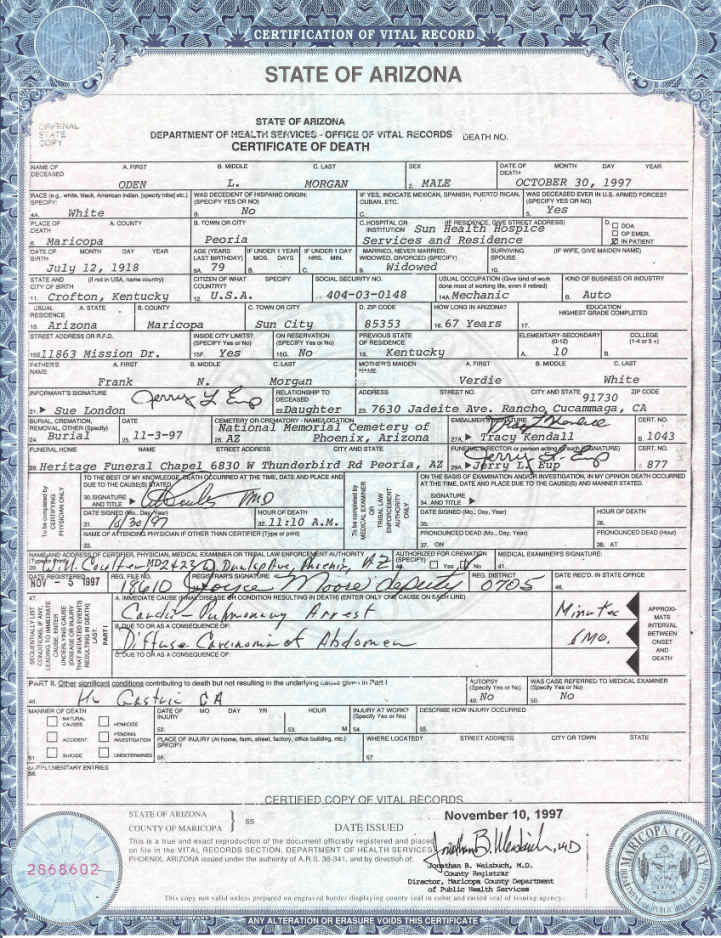 CERTIFICATION OF VITAL RECORD
STATE OF ARIZONA
STATE OF ARIZONA
DEPARTMENT OF HEALTH SERVICES - OFFICE OF VITAL RECORDS DEATH NO.
CERTIFICATE OF DEATH
STATE COPY
NAME OF DECEASED A. FIRST B. MIDDLE C. LAST SEX DATE OF DEATH MONTH DAY YEAR
ODEN L. MORGAN 2. MALE OCTOBER 30, 1997
RACE (e.g., white, black, American Indian, (specify tribe) etc.) SPECIFY: WAS DECEDENT OF HISPANIC ORIGIN (SPECIFY YES OR NO) IF YES, INDICATE MEXICAN, SPANISH, PUERTO RICAN, CUBAN, ETC. WAS DECEASED EVER IN U.S. ARMED FORCES? (SPECIFY YES OR NO)
4A. White B. No C. 5. Yes
PLACE OF DEATH A. COUNTY B. TOWN OR CITY C. HOSPITAL OR INSTITUTION (IF RESIDENCE, GIVE STREET ADDRESS) D. DOA
Sun Health Hospice OP EMER.
6. Maricopa Peoria Services and Residence IN PATIENT
DATE OF BIRTH MONTH DAY YEAR AGE (YEARS LAST BIRTHDAY) IF UNDER 1 YEAR MOS. DAYS IF UNDER 1 DAY HRS. MIN. MARRIED, NEVER MARRIED, WIDOWED, DIVORCED (SPECIFY) SURVIVING SPOUSE (IF WIFE, GIVE MAIDEN NAME)
July 12, 1918 8A. 79 B. C. 9. Widowed 10.
STATE AND CITY OF BIRTH (if not in USA, name country) CITIZEN OF WHAT COUNTRY? SPECIFY SOCIAL SECURITY NO. USUAL OCCUPATION (Give kind of work done most of working life, even if retired) KIND OF BUSINESS OR INDUSTRY
11. Crofton, Kentucky 12. U.S.A. 404-03-0148 14A. Mechanic B. Auto
USUAL RESIDENCE A. STATE B. COUNTY C. TOWN OR CITY D. ZIP CODE HOW LONG IN ARIZONA? EDUCATION HIGHEST GRADE COMPLETED
15. Arizona Maricopa Sun City 85353 16. 67 Years 17.
STREET ADDRESS OR R.F.D. INSIDE CITY LIMITS? (SPECIFY Yes or No) ON RESERVATION (SPECIFY Yes or No) PREVIOUS STATE OF RESIDENCE ELEMENTARY-SECONDARY (0-12) COLLEGE (1-4 or 5+)
15E. 11863 Mission Dr. 15F. Yes 15G. No 18. Kentucky A. 10 B.
FATHER'S NAME A. FIRST B. MIDDLE C. LAST MOTHER'S MAIDEN NAME A. FIRST B. MIDDLE C. LAST
Frank N. Morgan Verdie White
INFORMANT'S SIGNATURE RELATIONSHIP TO DECEASED ADDRESS STREET NO. CITY AND STATE 91730 ZIP CODE
21. Sue London 22. Daughter 23. 7630 Jadeite Ave. Rancho Cucammaga, CA
BURIAL, CREMATION, REMOVAL, OTHER (Specify) DATE CEMETERY OR CREMATORY - NAME/LOCATION EMBALMER'S SIGNATURE CERT. NO.
National Memorial Cemetery of
24. Burial 25. 11-3-97 26. AZ Phoenix, Arizona 27A. Tracy Kendall B. 1043
FUNERAL HOME NAME STREET ADDRESS CITY AND STATE FUNERAL DIRECTOR or person acting as such (SIGNATURE) CERT. NO.
28. Heritage Funeral Chapel 6830 W Thunderbird Rd Peoria, AZ 29A. Jerry L. Eup B. 877
To be completed by CERTIFYING PHYSICIAN ONLY
TO THE BEST OF MY KNOWLEDGE, DEATH OCCURRED AT THE TIME, DATE AND PLACE AND DUE TO THE CAUSE(S) STATED.
30. SIGNATURE AND TITLE MD
DATE SIGNED (Mo., Day, Year) HOUR OF DEATH
31. 10/30/97 32. 11:10 A.M.
NAME OF ATTENDING PHYSICIAN IF OTHER THAN CERTIFIER (Type or print)
33.
To be completed by MEDICAL EXAMINER OR TRIBAL LAW ENFORCEMENT AUTHORITY ONLY
ON THE BASIS OF EXAMINATION AND/OR INVESTIGATION, IN MY OPINION DEATH OCCURRED AT THE TIME, DATE AND PLACE DUE TO THE CAUSE(S) AND MANNER STATED.
SIGNATURE
34. AND TITLE
DATE SIGNED (Mo., Day, Year) HOUR OF DEATH
35. 36.
PRONOUNCED DEAD (Mo., Day, Year) PRONOUNCED DEAD (Hour)
37. ON 38. AT
NAME AND ADDRESS OF CERTIFIER, PHYSICIAN, MEDICAL EXAMINER OR TRIBAL LAW ENFORCEMENT AUTHORITY AUTHORIZED FOR CREMATION (SPECIFY) MEDICAL EXAMINER'S SIGNATURE:
Coulter MD Dunlap Ave, Phoenix, AZ Yes No
DATE REGISTERED REG. FILE NO. REGISTRAR'S SIGNATURE REG. DISTRICT DATE REC'D. IN STATE OFFICE
NOV - 5 1997 18610 Joyce Moore deputy 0705
47. SEQUENTIALLY LIST CONDITIONS, IF ANY, LEADING TO IMMEDIATE CAUSE. ENTER UNDERLYING CAUSE (DISEASE OR INJURY THAT INITIATED EVENTS RESULTING IN DEATH) LAST
PART I
A. IMMEDIATE CAUSE (FINAL DISEASE OR CONDITION RESULTING IN DEATH) (ENTER ONLY ONE CAUSE ON EACH LINE)
Cardio-Pulmonary Arrest Minutes
B. DUE TO OR AS A CONSEQUENCE OF:
Diffuse Carcinoma of Abdomen 6 Mo.
C. DUE TO OR AS A CONSEQUENCE OF:
APPROXIMATE INTERVAL BETWEEN ONSET AND DEATH
PART II. Other significant conditions contributing to death but not resulting in the underlying cause given in Part I AUTOPSY (Specify Yes or No) WAS CASE REFERRED TO MEDICAL EXAMINER (Specify Yes or No)
Hx Gastric CA 49. No 50. No
MANNER OF DEATH DATE OF INJURY MO DAY YR HOUR INJURY AT WORK? (Specify Yes or No) DESCRIBE HOW INJURY OCCURRED
NATURAL CAUSES HOMICIDE 52. 53. M 54. 55.
ACCIDENT PENDING INVESTIGATION PLACE OF INJURY (At home, farm, street, factory, office building, etc.) SPECIFY WHERE LOCATED? STREET ADDRESS CITY OR TOWN STATE
51. SUICIDE UNDETERMINED 56. 57.
SUPPLEMENTARY ENTRIES
58.
CERTIFIED COPY OF VITAL RECORDS
STATE OF ARIZONA
COUNTY OF MARICOPA } SS DATE ISSUED November 10, 1997
This is a true and exact reproduction of the document officially registered and placed
on file in the VITAL RECORDS SECTION, DEPARTMENT OF HEALTH SERVICES
PHOENIX, ARIZONA issued under the authority of A.R.S. 36-341, and by direction of:
2868602
Jonathan B. Weisbuch, M.D.
County Registrar
Director, Maricopa County Department
of Public Health Services
This copy not valid unless prepared on engraved border displaying county seal in color and raised seal of issuing agency.
MARICOPA COUNTY
ANY ALTERATION OR ERASURE VOIDS THIS CERTIFICATE